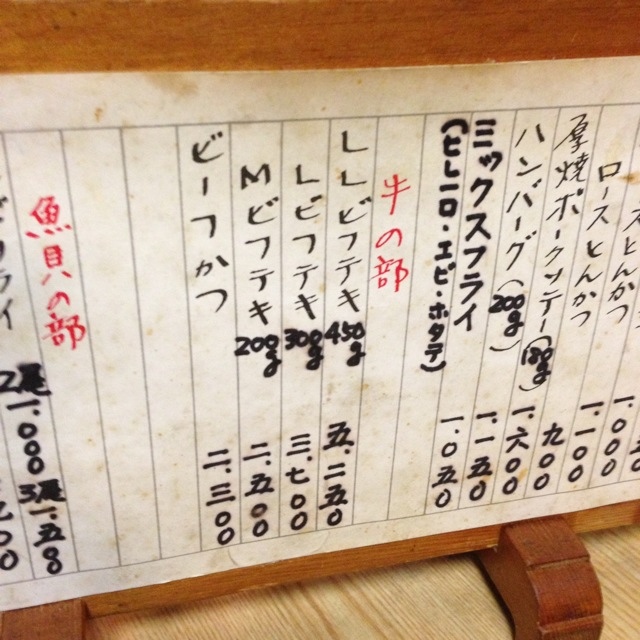 とんかつ
ロースとんかつ
厚焼ポークソテー(180g) 一.六〇〇
ハンバーグ(200g) 一.一五〇
ミックスフライ 一.〇五〇
(ヒレ一口・エビ・ホタテ)
牛の部
LLビフテキ 450g 五.二五〇
Lビフテキ 300g 三.七〇〇
Mビフテキ 200g 二.五〇〇
ビーフかつ 二.三〇〇
魚貝の部
フライ 2尾 一.〇〇〇
3尾 一.五